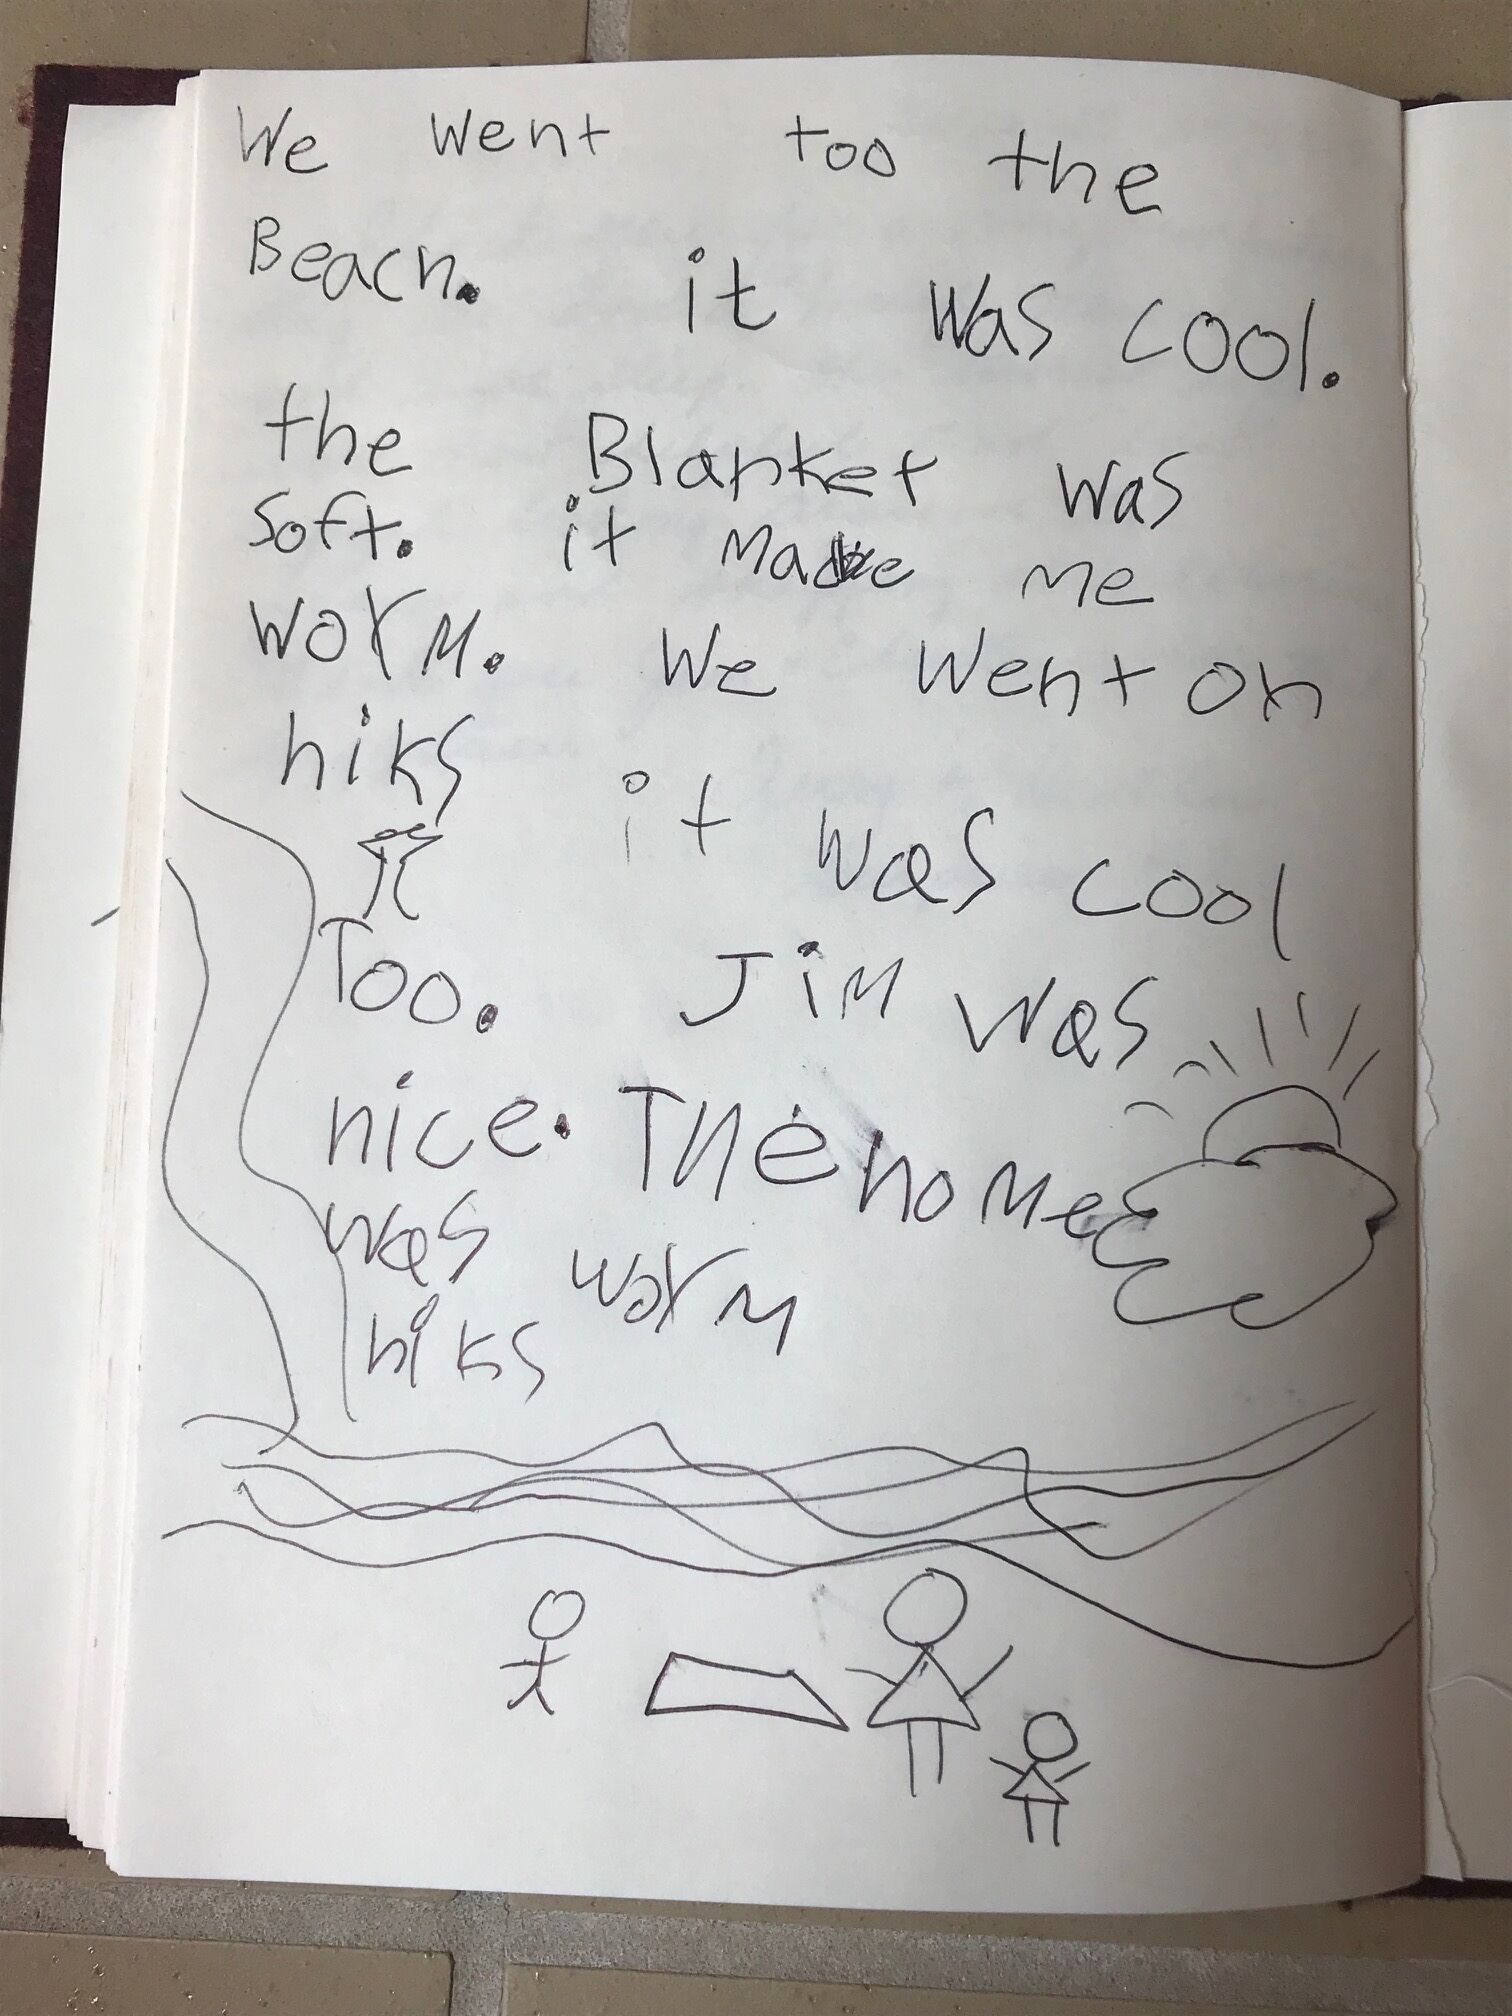 We went too the
Beach. it was cool.
the Blanket was
soft. it made me
worm. We went on
hiks it was cool
Too. Jim was
nice. The home
was worm
hiks